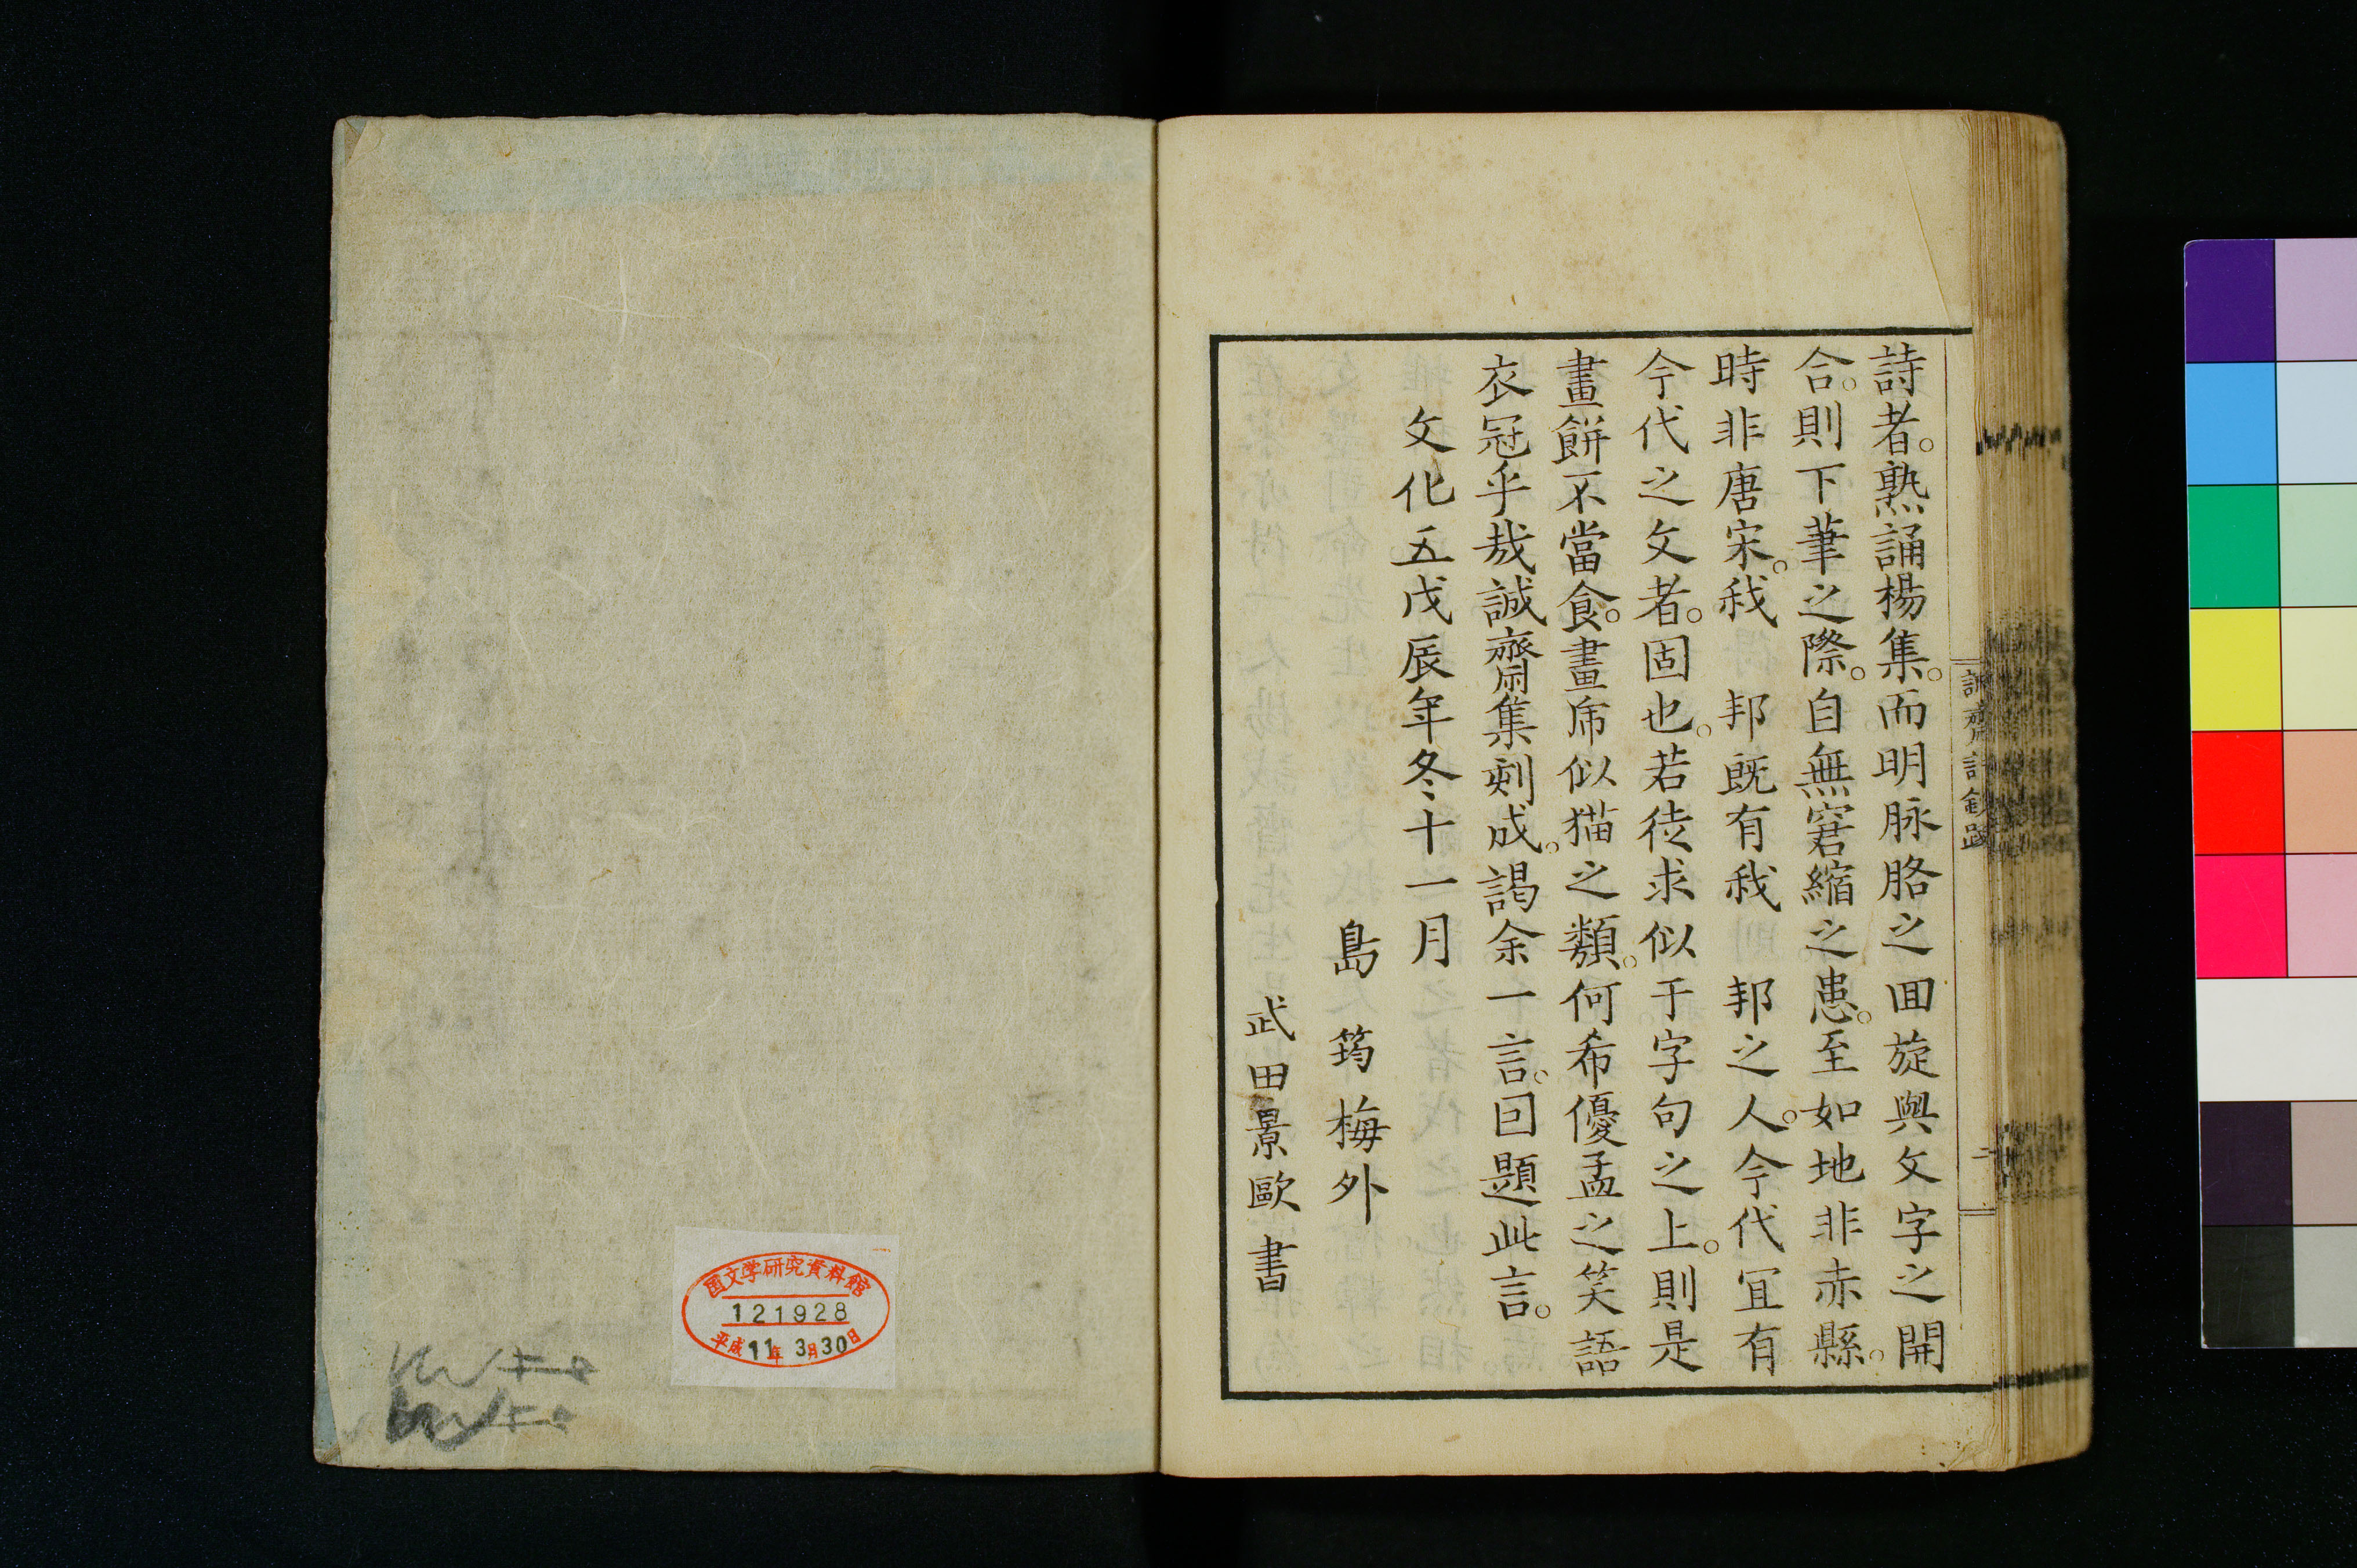 詩者。熟誦楊集。而明脉胳之囬旋與文字之開
合。則下筆之際。自無窘縮之患。至如地非赤縣。
時非唐宋。我　邦既有我　邦之人。今代冝有
今代之文者。固也。若徒求似于字句之上。則是
畫餅不當食。畫席似猫之類。何希優孟之笑語
衣冠乎哉誠齋集刻成。謁余一言。囙題此言。
文化五戊辰年冬十一月
島　筠梅外
武田景歐書
誠齋詩鈔跋
二
国文学研究資料館
121928
平成11年3月30日